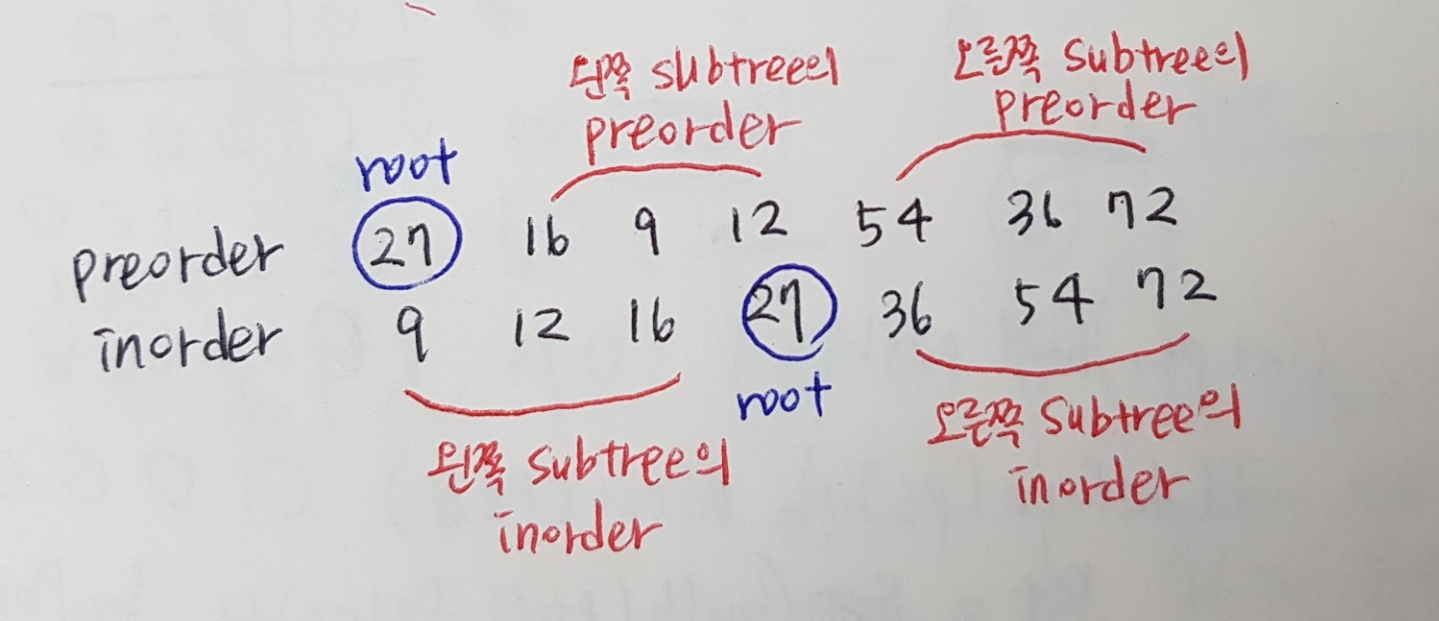 왼쪽 subtree의
preorder
오른쪽 subtree의
preorder
root
preorder 27 16 9 12 54 36 72
inorder 9 12 16 27 36 54 72
root
왼쪽 subtree의
inorder
오른쪽 subtree의
inorder